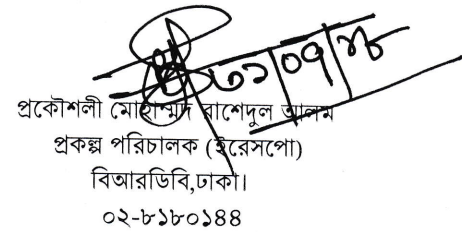 ৩১|০৭|
প্রকৌশলী মোহাম্মদ রাশেদুল আলম
প্রকল্প পরিচালক (ইরেসপো)
বিআরডিবি,ঢাকা।
০২-৮১৮০১৪৪